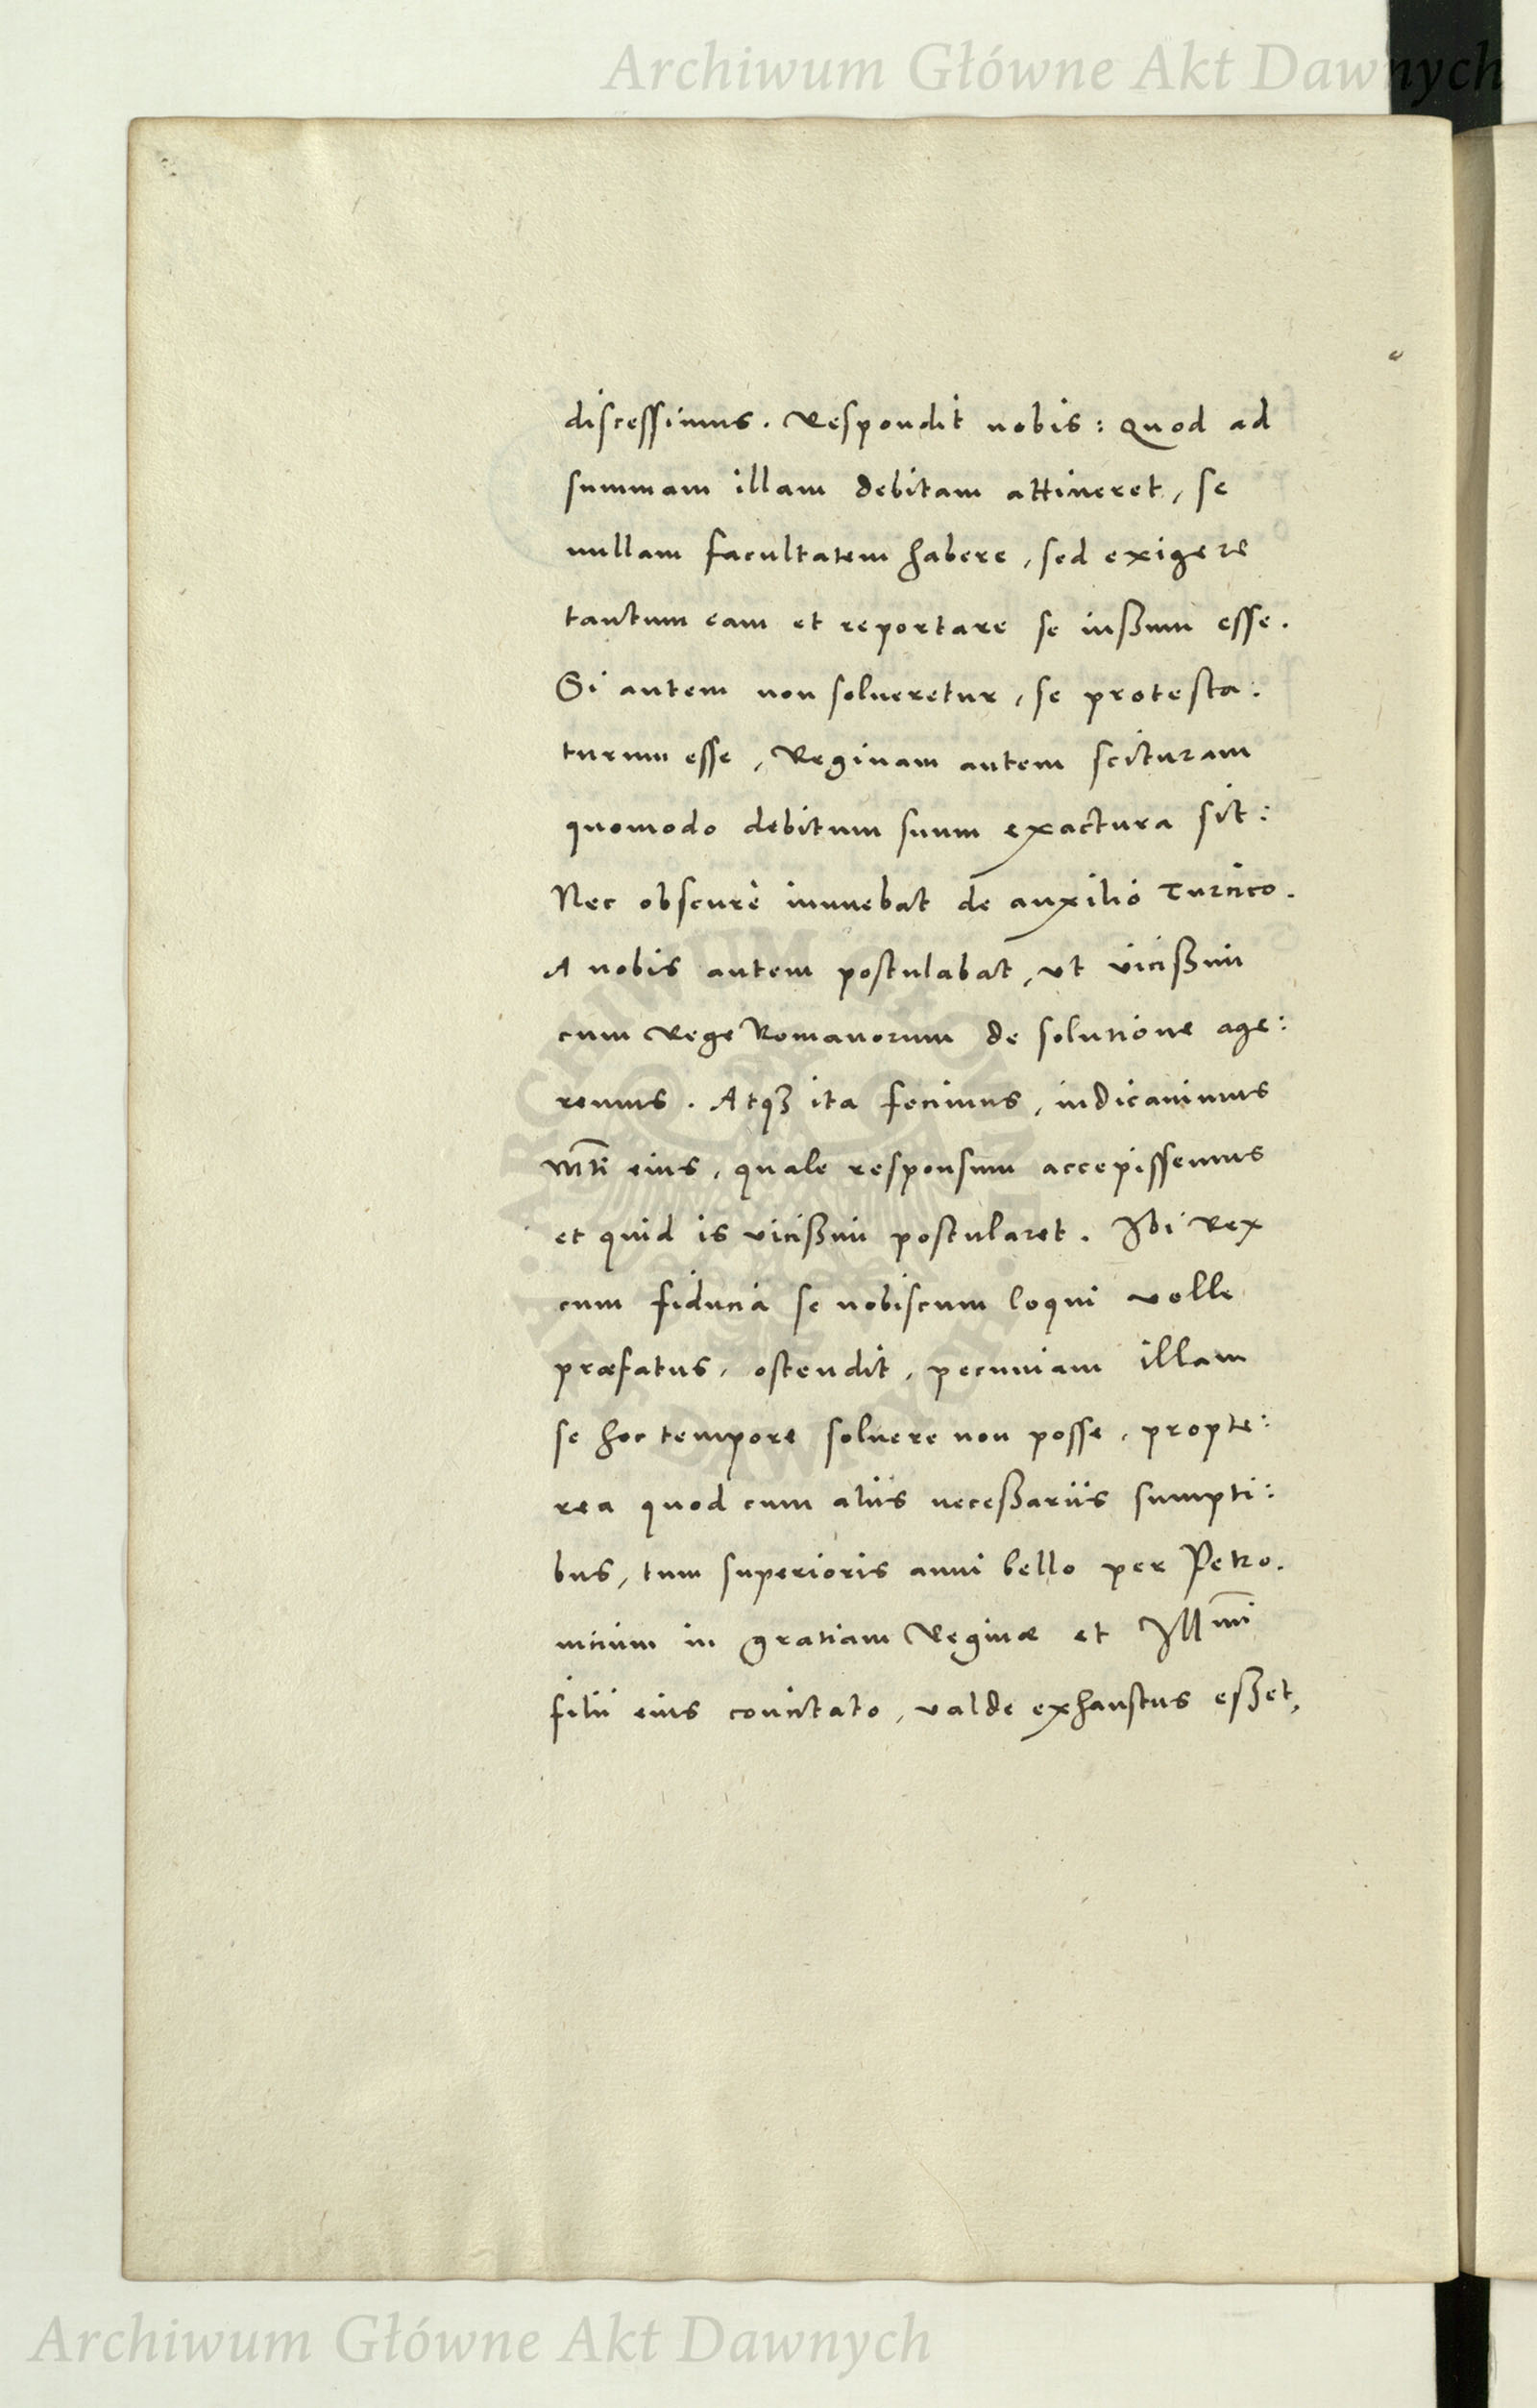 Archiwum Główne Akt Dawnych
discessimus. Respondit nobis: Quod ad
summam illam debitam attineret, se
nullam facultatem habere, sed exigere
tantum eam et reportare se iußum esse.
Si autem non solueretur, se protesta:
turum esse, Reginam autem scituram
quomodo debitum suum exactura sit:
Nec obscurè innuebat de auxilio Turcico.
A nobis autem postulabat, ut vicißim
cum Rege Romanorum de solutione age:
remus. Atqȝ ita fecimus, indicauimus
Mti eius, quale responsum accepissemus
et quid is vicißim postularet. Ibi Rex
cum fiducia se nobiscum loqui velle
præfatus, ostendit, pecuniam illam
se hoc tempore soluere non posse, propte:
rea quod cum aliis neceßariis sumpti:
bus, tum superioris anni bello per Petro.
uicium in gratiam Reginæ et Illmi
filii eius concitato, valde exhaustus eßet,
ARCHIWUM GŁÓWNE AKT DAWNYCH
Archiwum Główne Akt Dawnych